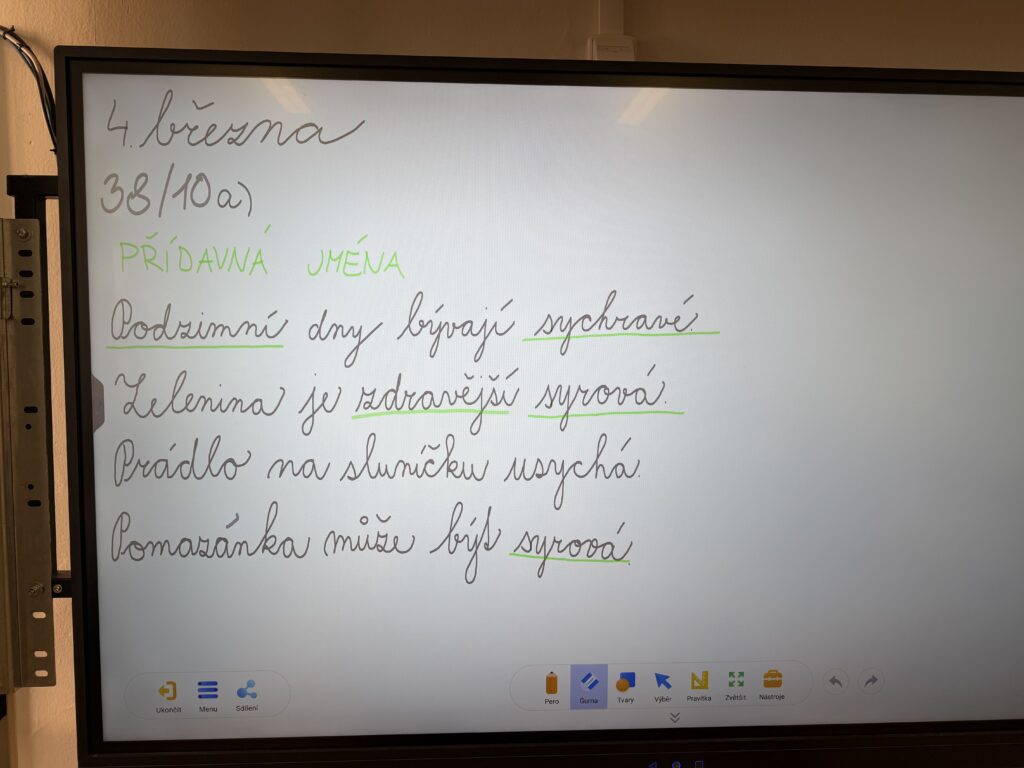 4. března
38/10a)
PŘÍDAVNÁ JMÉNA
Podzimní dny bývají sychravé.
Zelenina je zdravější syrová.
Prádlo na sluníčku usychá.
Pomazánka může být syrová.
Ukončit Menu Sdílení Pero Guma Tvary Výběr Pravítka Zvětšit Nástroje